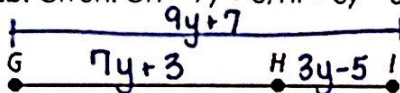 9y+7
G 7y+3 H 3y-5 I